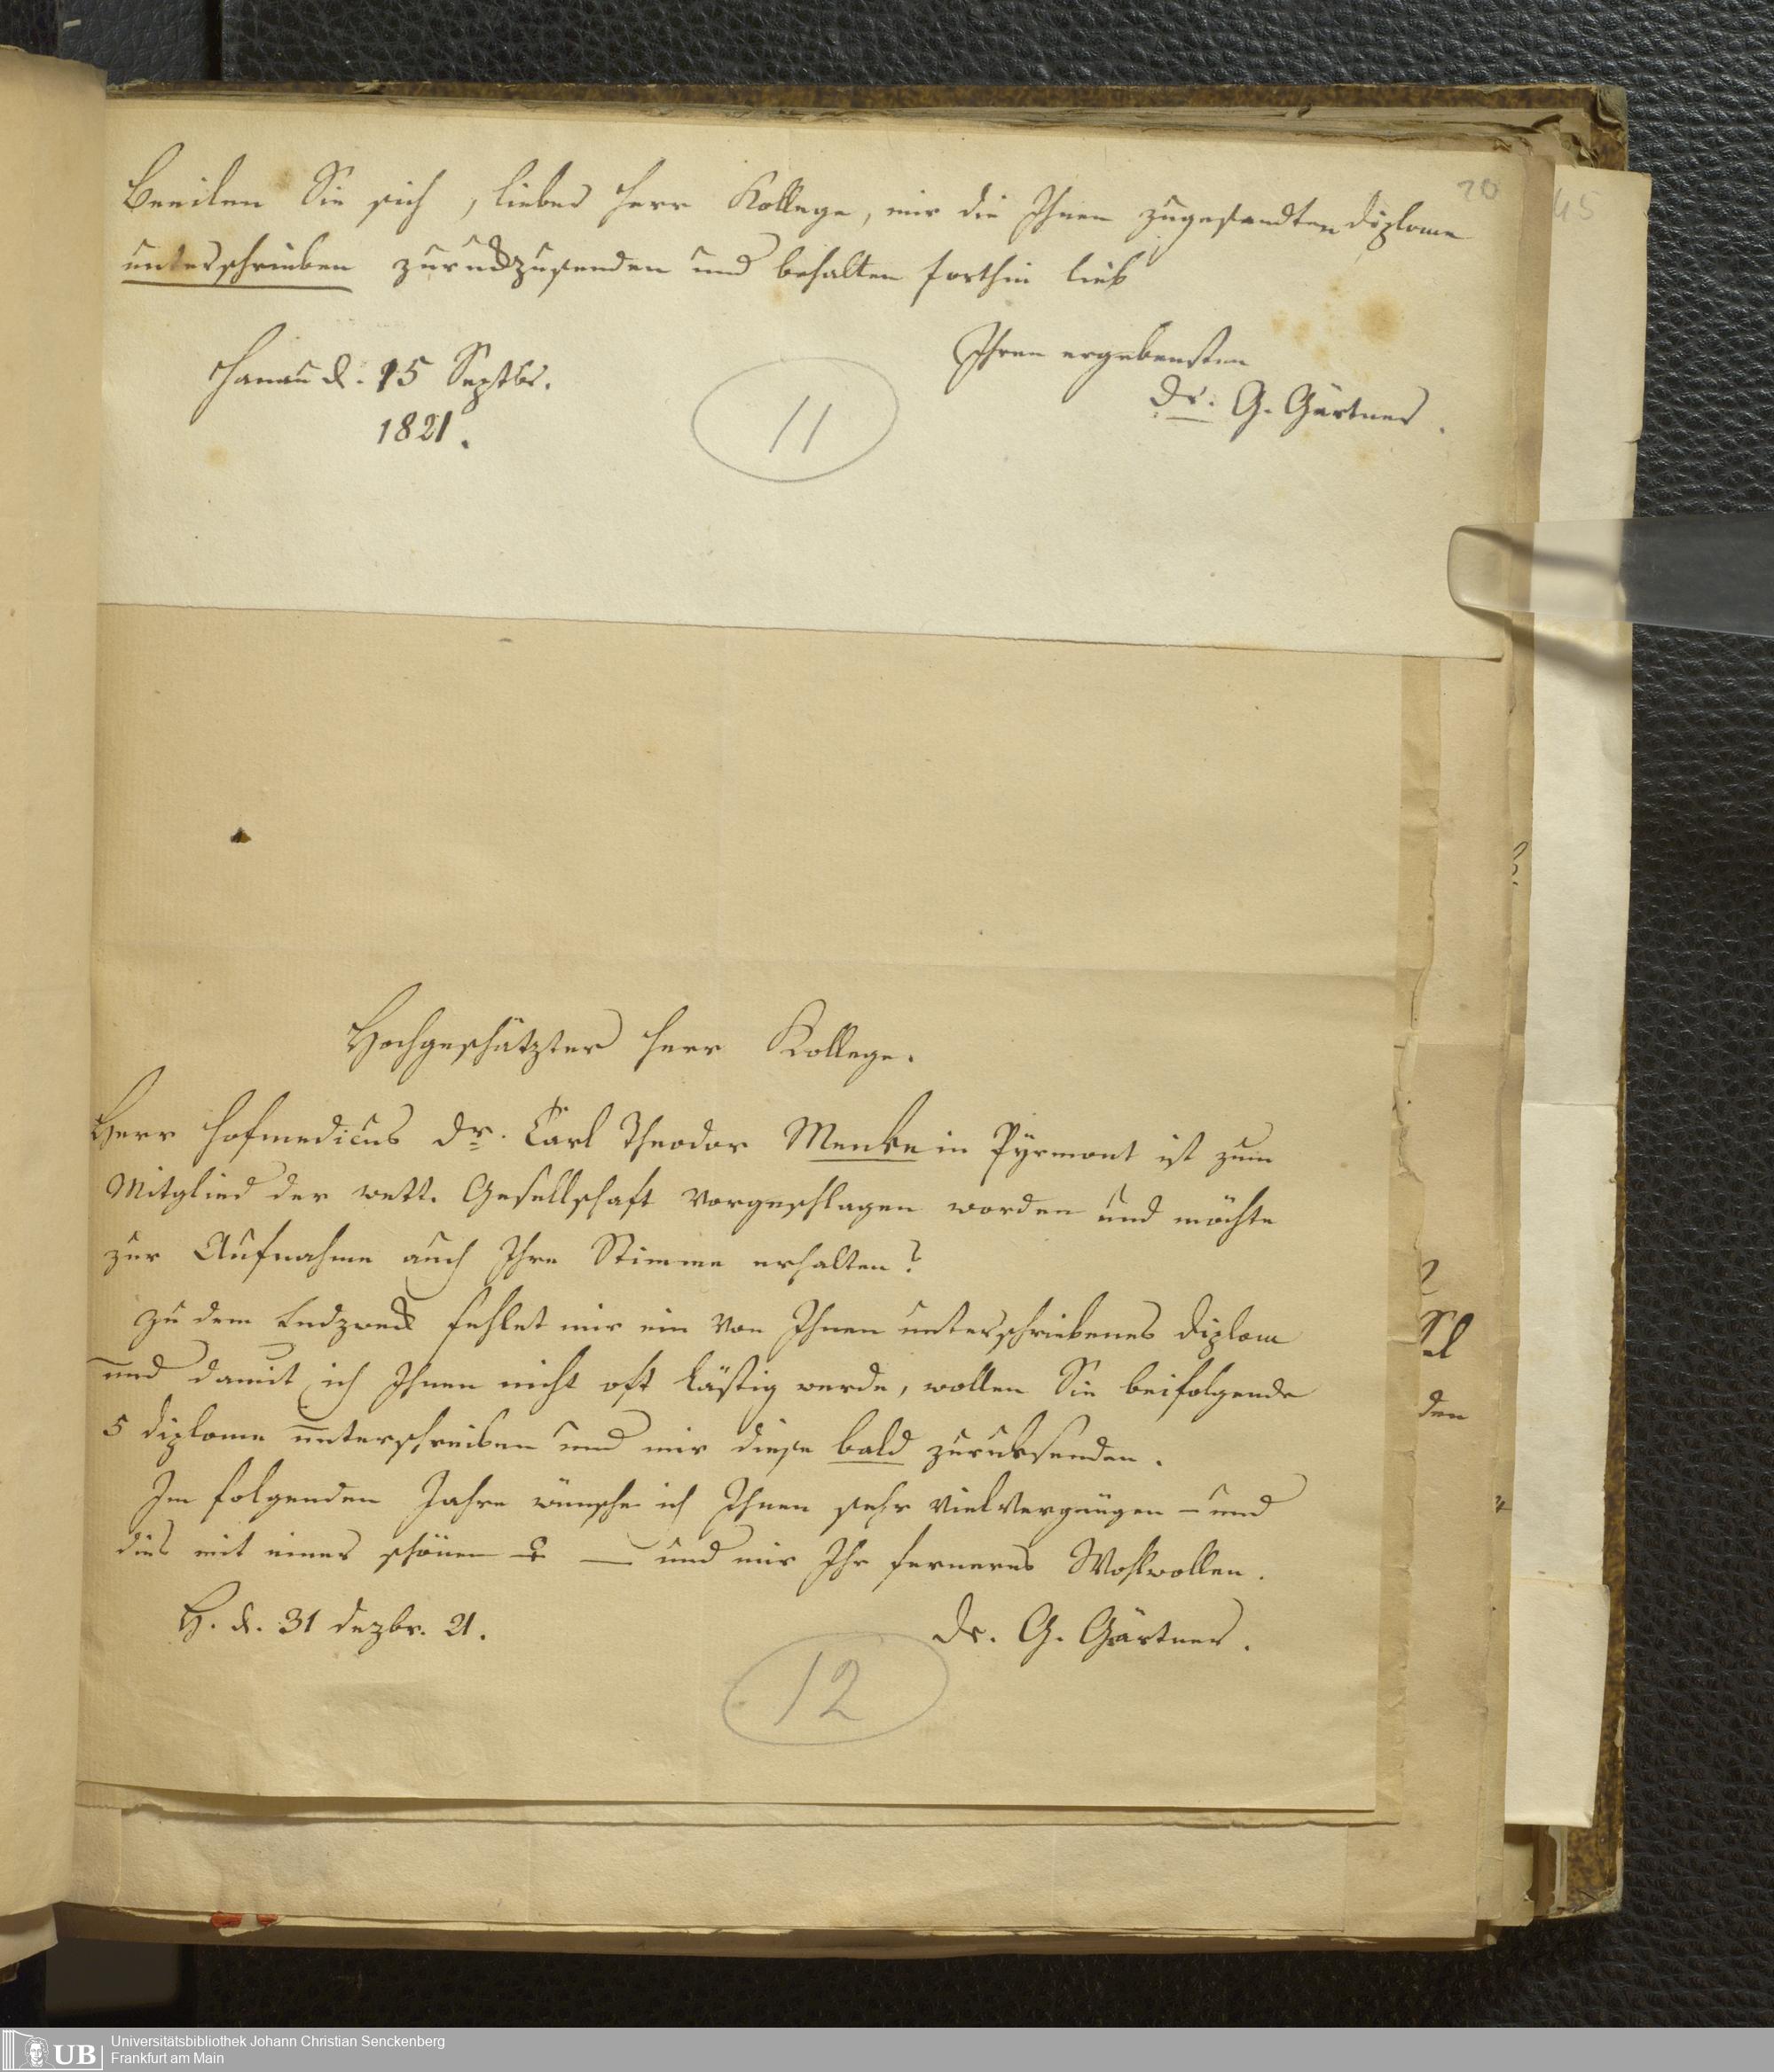 Beeilen Sie sich, lieber Herr Kollege, mir die Ihnen zugesandten Diplome
unterschrieben zurückzusenden und behalten forthin lieb
Ihren ergebensten
Hanau d. 15 Septbr.
Dr. G. Gärtner.
1821.
11
20
45
Hochgeschätzter Herr Kollege.
Herr Hofmedicus Dr. Carl Theodor Menke in Pÿrmont ist zum
Mitglied der wett. Gesellschaft vorgeschlagen worden und möchte
zur Aufnahme auch Ihre Stimme erhalten?
Zu dem Endzweck fehlet mir ein von Ihnen unterschriebenes Diplom
und damit ich Ihnen nicht oft lästig werde, wollen Sie beifolgende
den
5 Diplome unterschreiben und mir diese bald zurücksenden.
Im folgenden Jahre wünsche ich Ihnen sehr viel Vergnügen – und
dies mit einer schönen ♀ — und mir Ihr ferneres Wohlwollen.
H. d. 31 Dezbr. 21.
Dr. G. Gärtner.
12
UB
Universitätsbibliothek Johann Christian Senckenberg
Frankfurt am Main